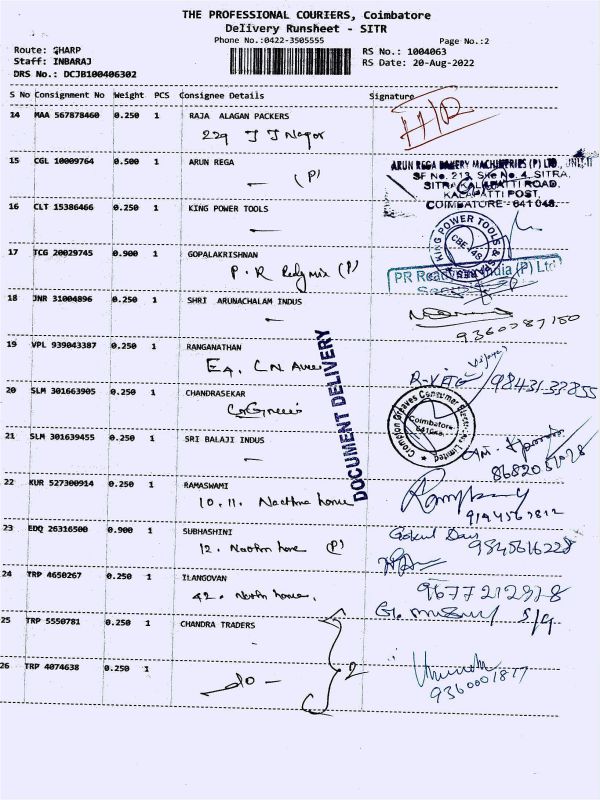 THE PROFESSIONAL COURIERS, Coimbatore
Delivery Runsheet - SITR
Phone No.:0422-3505555
Page No.:2
Route: SHARP
RS No.: 1004063
Staff: INBARAJ
RS Date: 20-Aug-2022
DRS No.: DCJB100406302
S No Consignment No Weight PCS Consignee Details Signature
14 MAA 567878460 0.250 1 RAJA ALAGAN PACKERS
229 J J Nagar
15 CGL 10009764 0.500 1 ARUN REGA
(P)
ARUN REGA BAKERY MACHINERIES (P) LTD.,
SF No. 213, Site No. 4, SITRA,
SITRA KALAPATTI ROAD,
KALAPATTI POST,
COIMBATORE - 641 048.
16 CLT 15386466 0.250 1 KING POWER TOOLS
KING POWER TOOLS &
CBE-48
17 TCG 20029745 0.900 1 GOPALAKRISHNAN
P. R Redymix (P)
PR Readymix India (P) Ltd
18 JNR 31004896 0.250 1 SHRI ARUNACHALAM INDUS
9360087180
19 VPL 939043387 0.250 1 RANGANATHAN
DOCUMENT DELIVERY
9843133855
20 SLM 301663905 0.250 1 CHANDRASEKAR
Crompton Greaves Consumer Electricals Limited
Coimbatore
21 SLM 301639455 0.250 1 SRI BALAJI INDUS
22 KUR 527300914 0.250 1 RAMASWAMI
10. 11.
23 EDQ 26316500 0.900 1 SUBHASHINI
12. (P)
Gokul Das
9345616228
24 TRP 4650267 0.250 1 ILANGOVAN
42.
9677212978
25 TRP 5550781 0.250 1 CHANDRA TRADERS
2
26 TRP 4074638 0.250 1
-do-
9360001817